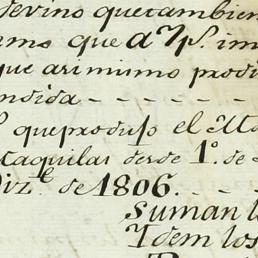 de vino que tambien
que a 7 p.s im
que asimismo prod
ndida - - - - - -
que produjo el
taquilas desde 1.º de
Diz.e de 1806. - -
Suman l
Ydem los